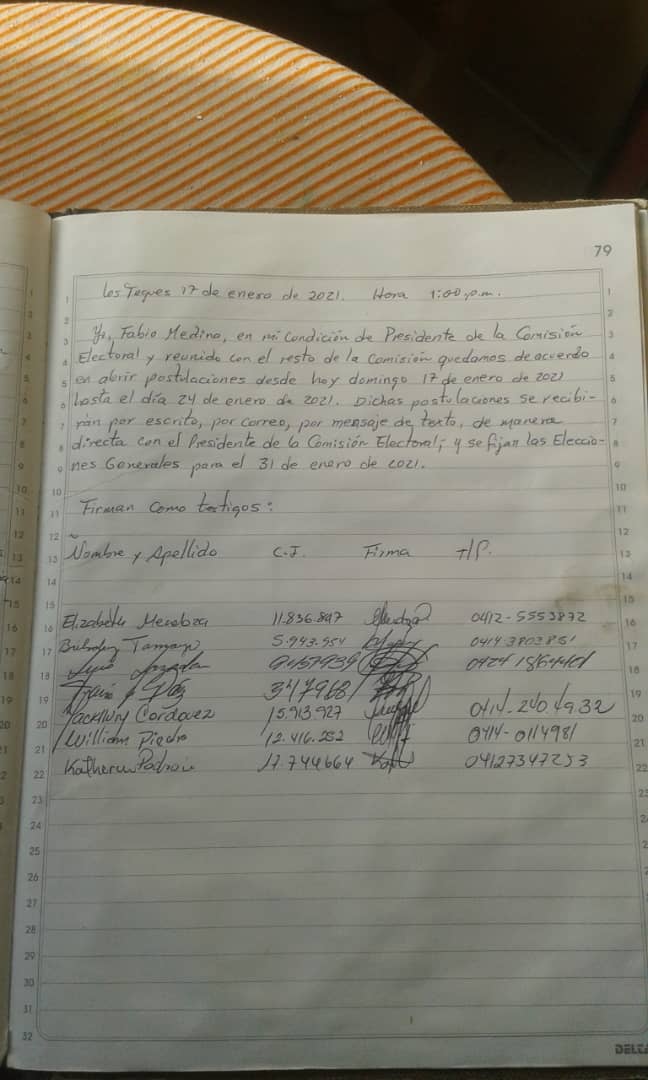 79
Los Teques 17 de enero de 2021. Hora 1:00 p.m.
Yo, Fabio Medina, en mi condición de Presidente de la Comisión
Electoral y reunido con el resto de la Comisión quedamos de acuerdo
en abrir postulaciones desde hoy domingo 17 de enero de 2021
hasta el día 24 de enero de 2021. Dichas postulaciones se recibi-
rán por escrito, por correo, por mensaje de texto, de manera
directa con el Presidente de la Comisión Electoral; y se fijan las Eleccio-
nes Generales para el 31 de enero de 2021.
Firman como testigos:
Nombre y Apellido C.I. Firma Tlf.
Elizabeth Mendoza 11.836.847 0412-5553872
Tamayo 5.943.954 0414
Luis
347968
Cordovez 15.913.927 0414-240 4932
William Piedra 12.416.252 0414-0114981
Katherin 17.744664 04127347253
DELTA